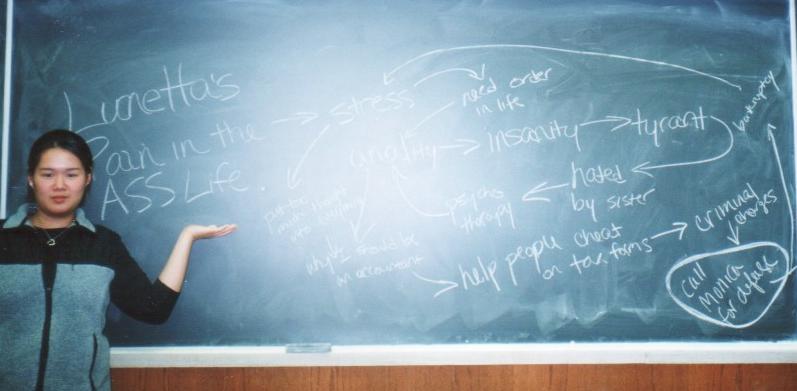 Lunetta's
Pain in the
ASS LIFE.
stress
need order
in life
anality
insanity
tyrant
hated
by sister
psycho
therapy
put too
much thought
into everything
why I should be
an accountant
help people cheat
on tax forms
criminal
charges
call
Monica
for defense
bankruptcy